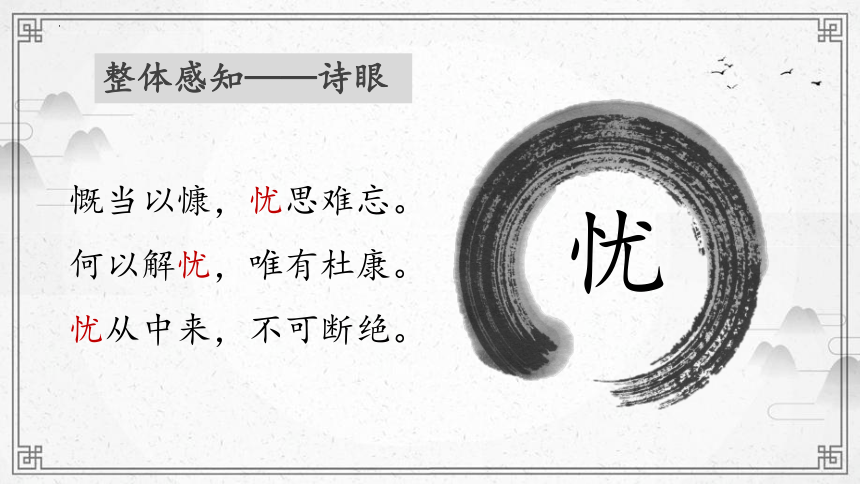 整体感知——诗眼
慨当以慷，忧思难忘。
何以解忧，唯有杜康。
忧从中来，不可断绝。
忧